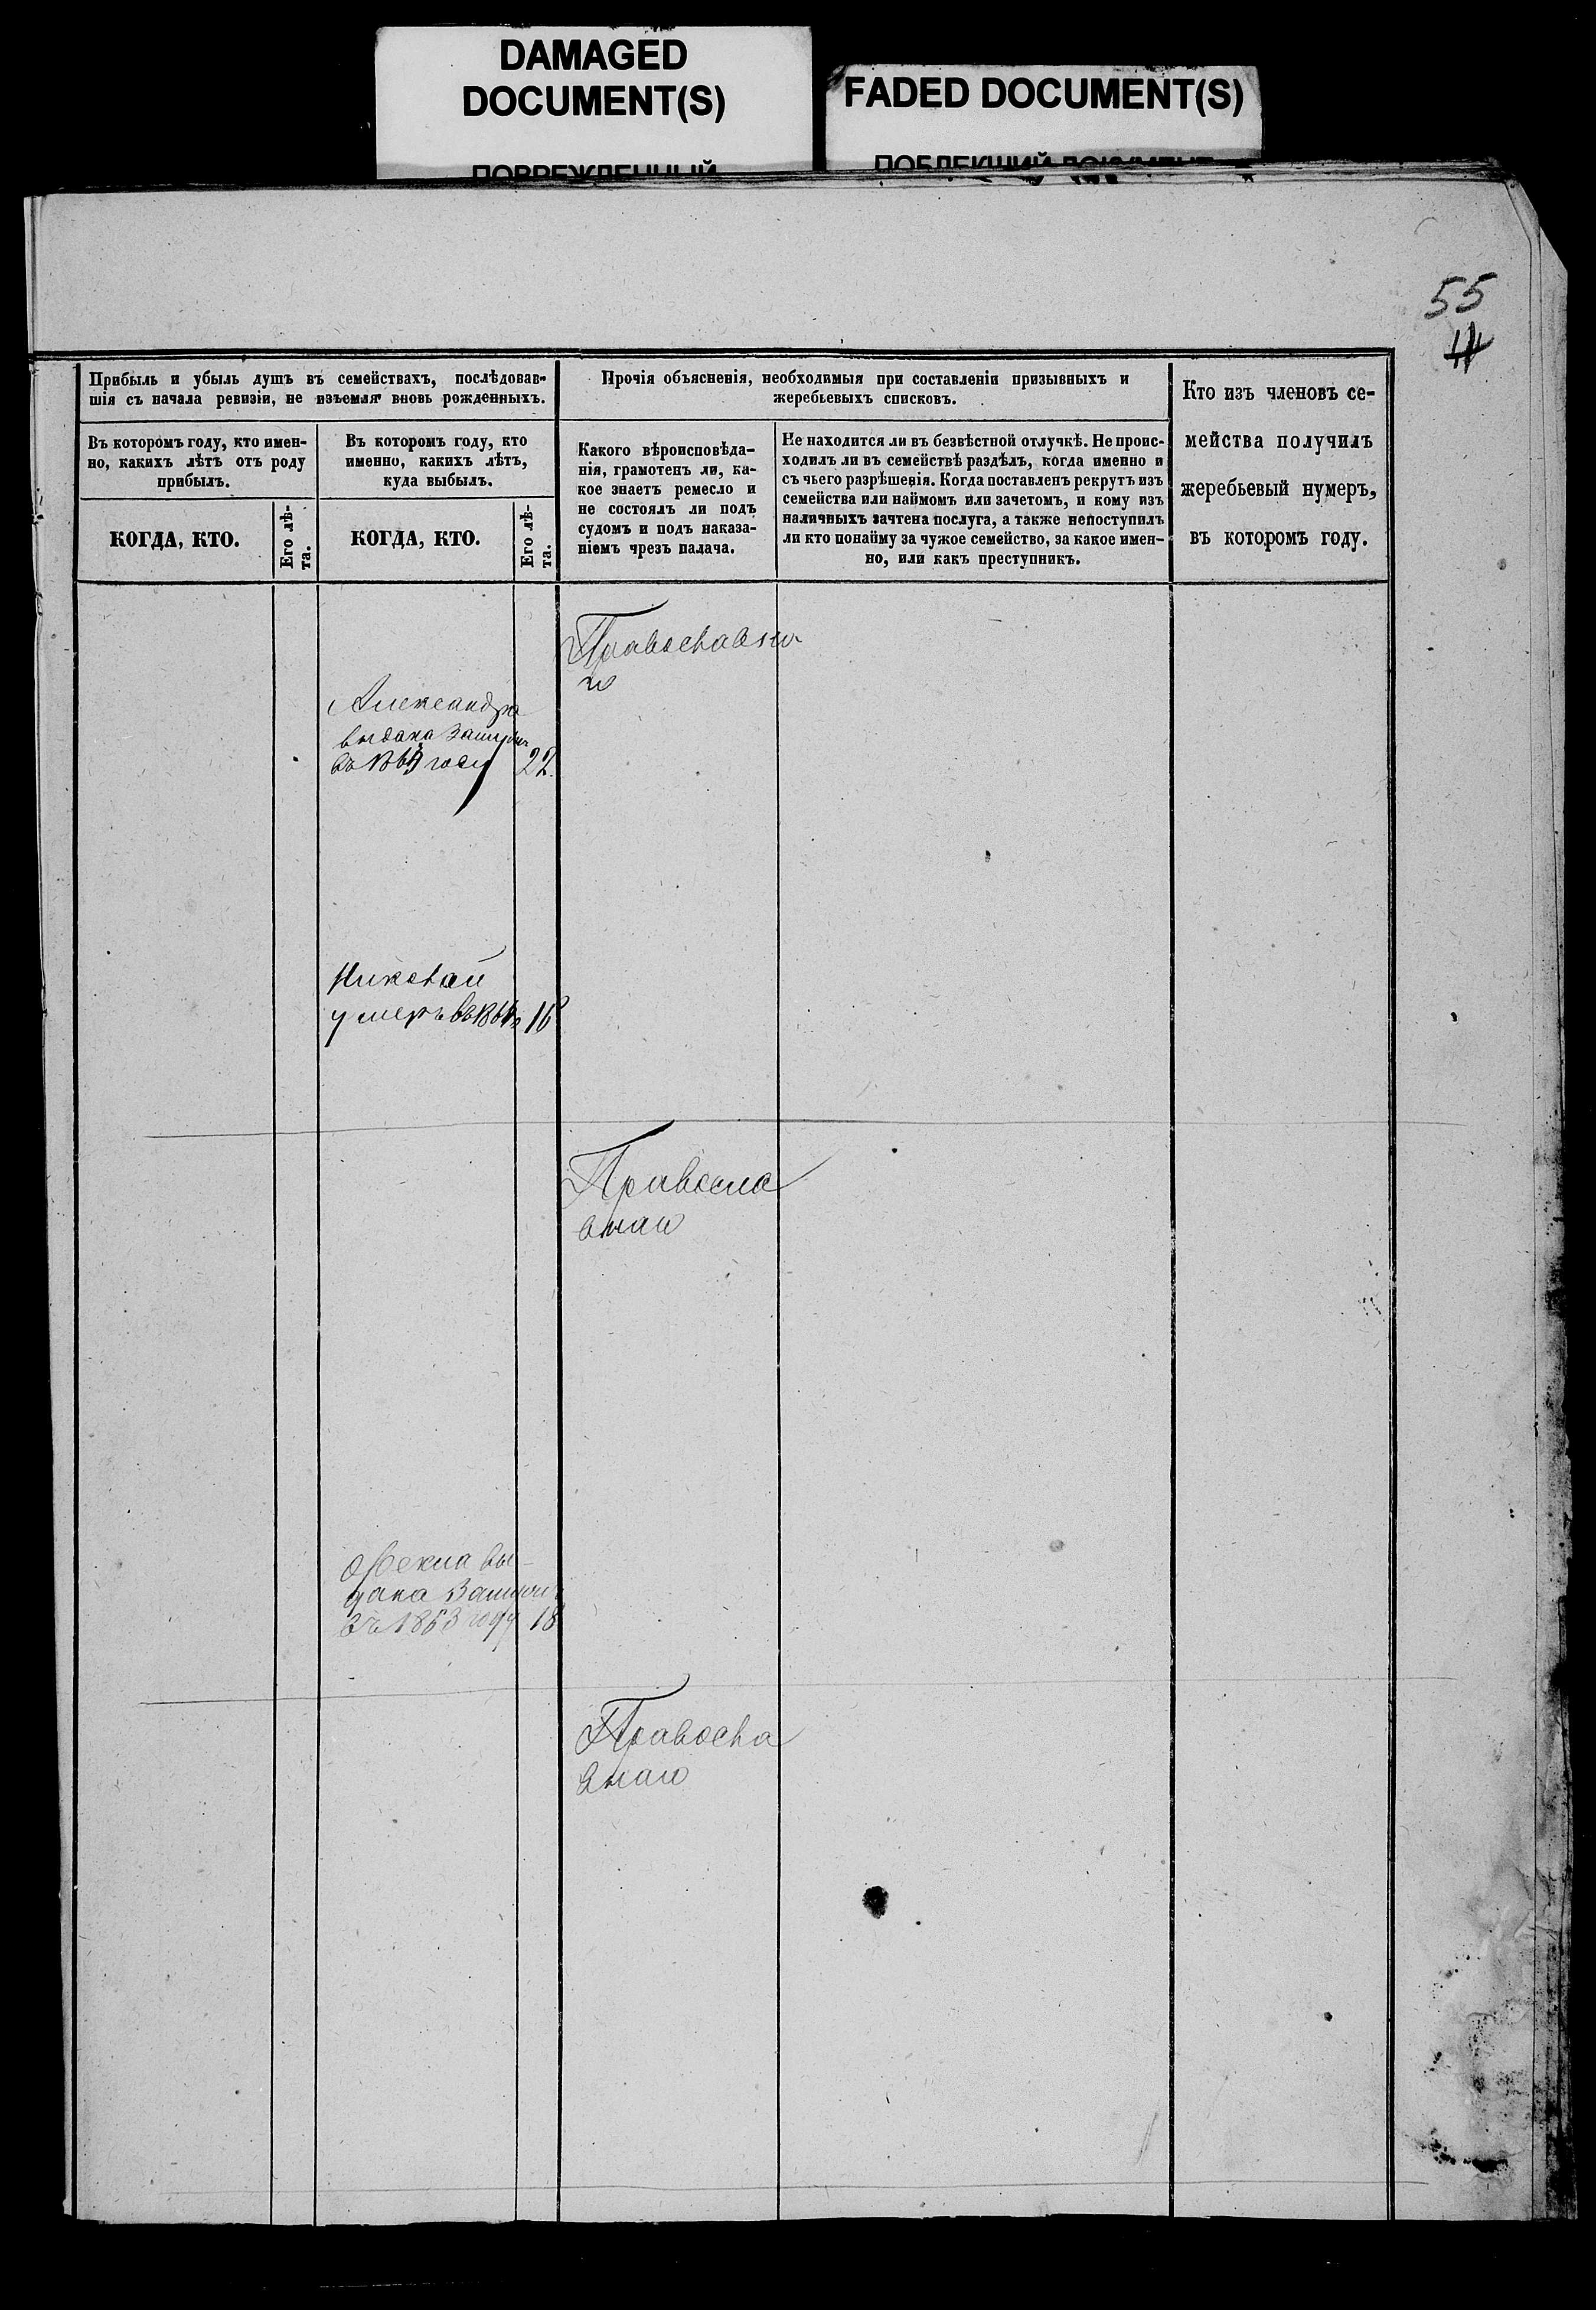 DAMAGED
DOCUMENT(S)
ПОВРЕЖДЕННЫЙ
FADED DOCUMENT(S)
ПОБЛЕКШИЙ ДОКУМЕНТ
55
Прибыль и убыль душъ въ семействахъ, послѣдовав-
шія съ начала ревизіи, не изъемля вновь рожденныхъ.
Въ которомъ году, кто имен-
но, какихъ лѣтъ отъ роду
прибылъ.
КОГДА, КТО.
Его лѣ-
та.
Въ которомъ году, кто
именно, какихъ лѣтъ,
куда выбылъ.
КОГДА, КТО.
Его лѣ-
та.
Прочія объясненія, необходимыя при составленіи призывныхъ и
жеребьевыхъ списковъ.
Какого вѣроисповѣда-
нія, грамотенъ ли, ка-
кое знаетъ ремесло и
не состоялъ ли подъ
судомъ и подъ наказа-
ніемъ чрезъ палача.
Не находится ли въ безвѣстной отлучкѣ. Не проис-
ходилъ ли въ семействѣ раздѣлъ, когда именно и
съ чьего разрѣшенія. Когда поставленъ рекрутъ изъ
семейства или наймомъ или зачетомъ, и кому изъ
наличныхъ зачтена послуга, а также непоступилъ
ли кто понайму за чужое семейство, за какое имен-
но, или какъ преступникъ.
Кто изъ членовъ се-
мейства получилъ
жеребьевый нумеръ,
въ которомъ году.
Православна
го
Александра
выдана Замужъ
въ году 22.
Николай
умеръ въ 16
Правосла
внаго
Фекла вы-
дана Замужъ
въ 1863 году 18
Правосла
внаго